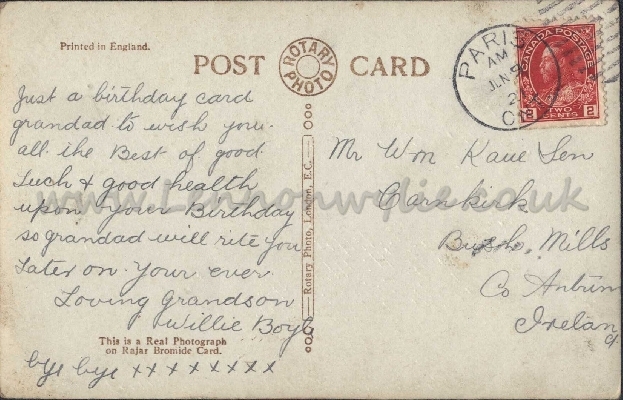 Printed in England.
POST CARD
ROTARY PHOTO
PARIS
AM
JUN
CANADA POSTAGE
2 TWO CENTS 2
Just a birthday card
grandad to wish you
all the Best of good
luck & good health
upon your Birthday
so grandad will rite you
later on. Your ever
Loving Grandson
Willie Boyle
bye bye x x x x x x x x
This is a Real Photograph
on Rajar Bromide Card.
Rotary Photo, London, E.C.
Mr Wm Kane Sen
Carnkirk
Bush Mills
Co Antrim
Ireland